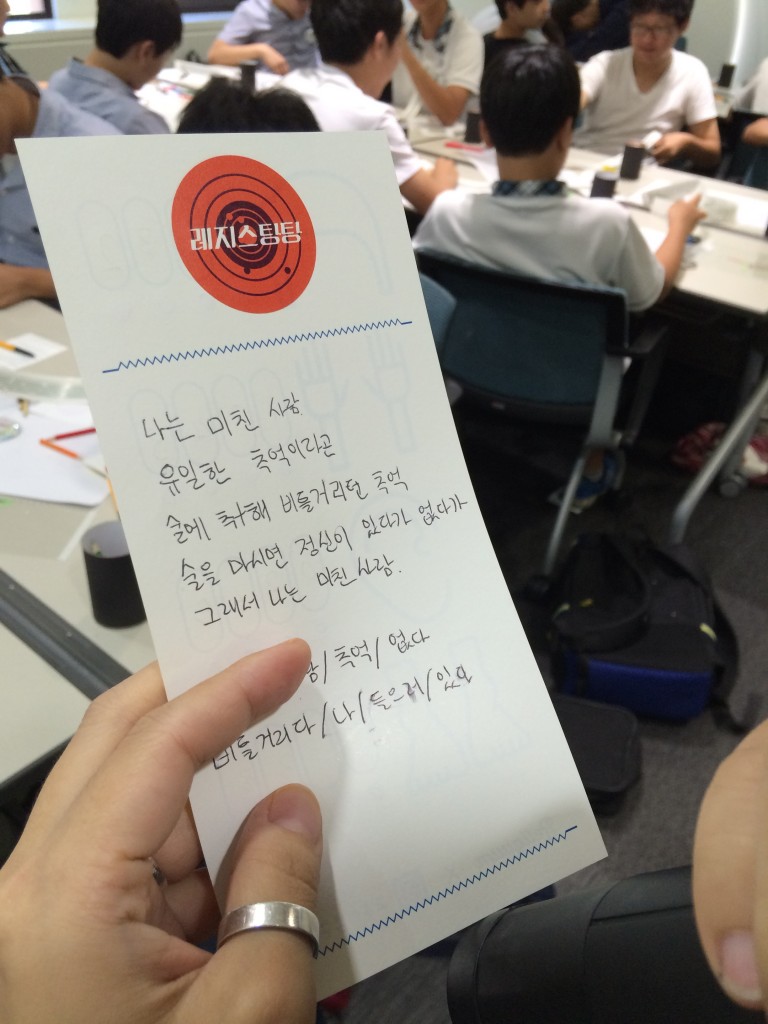 레지스텅탕
나는 미친 사람
유일한 추억이라곤
술에 취해 비틀거리던 추억
술을 마시면 정신이 있다가 없다가
그래서 나는 미친사람.
/추억/없다
비틀거리다/나/들으러/있으